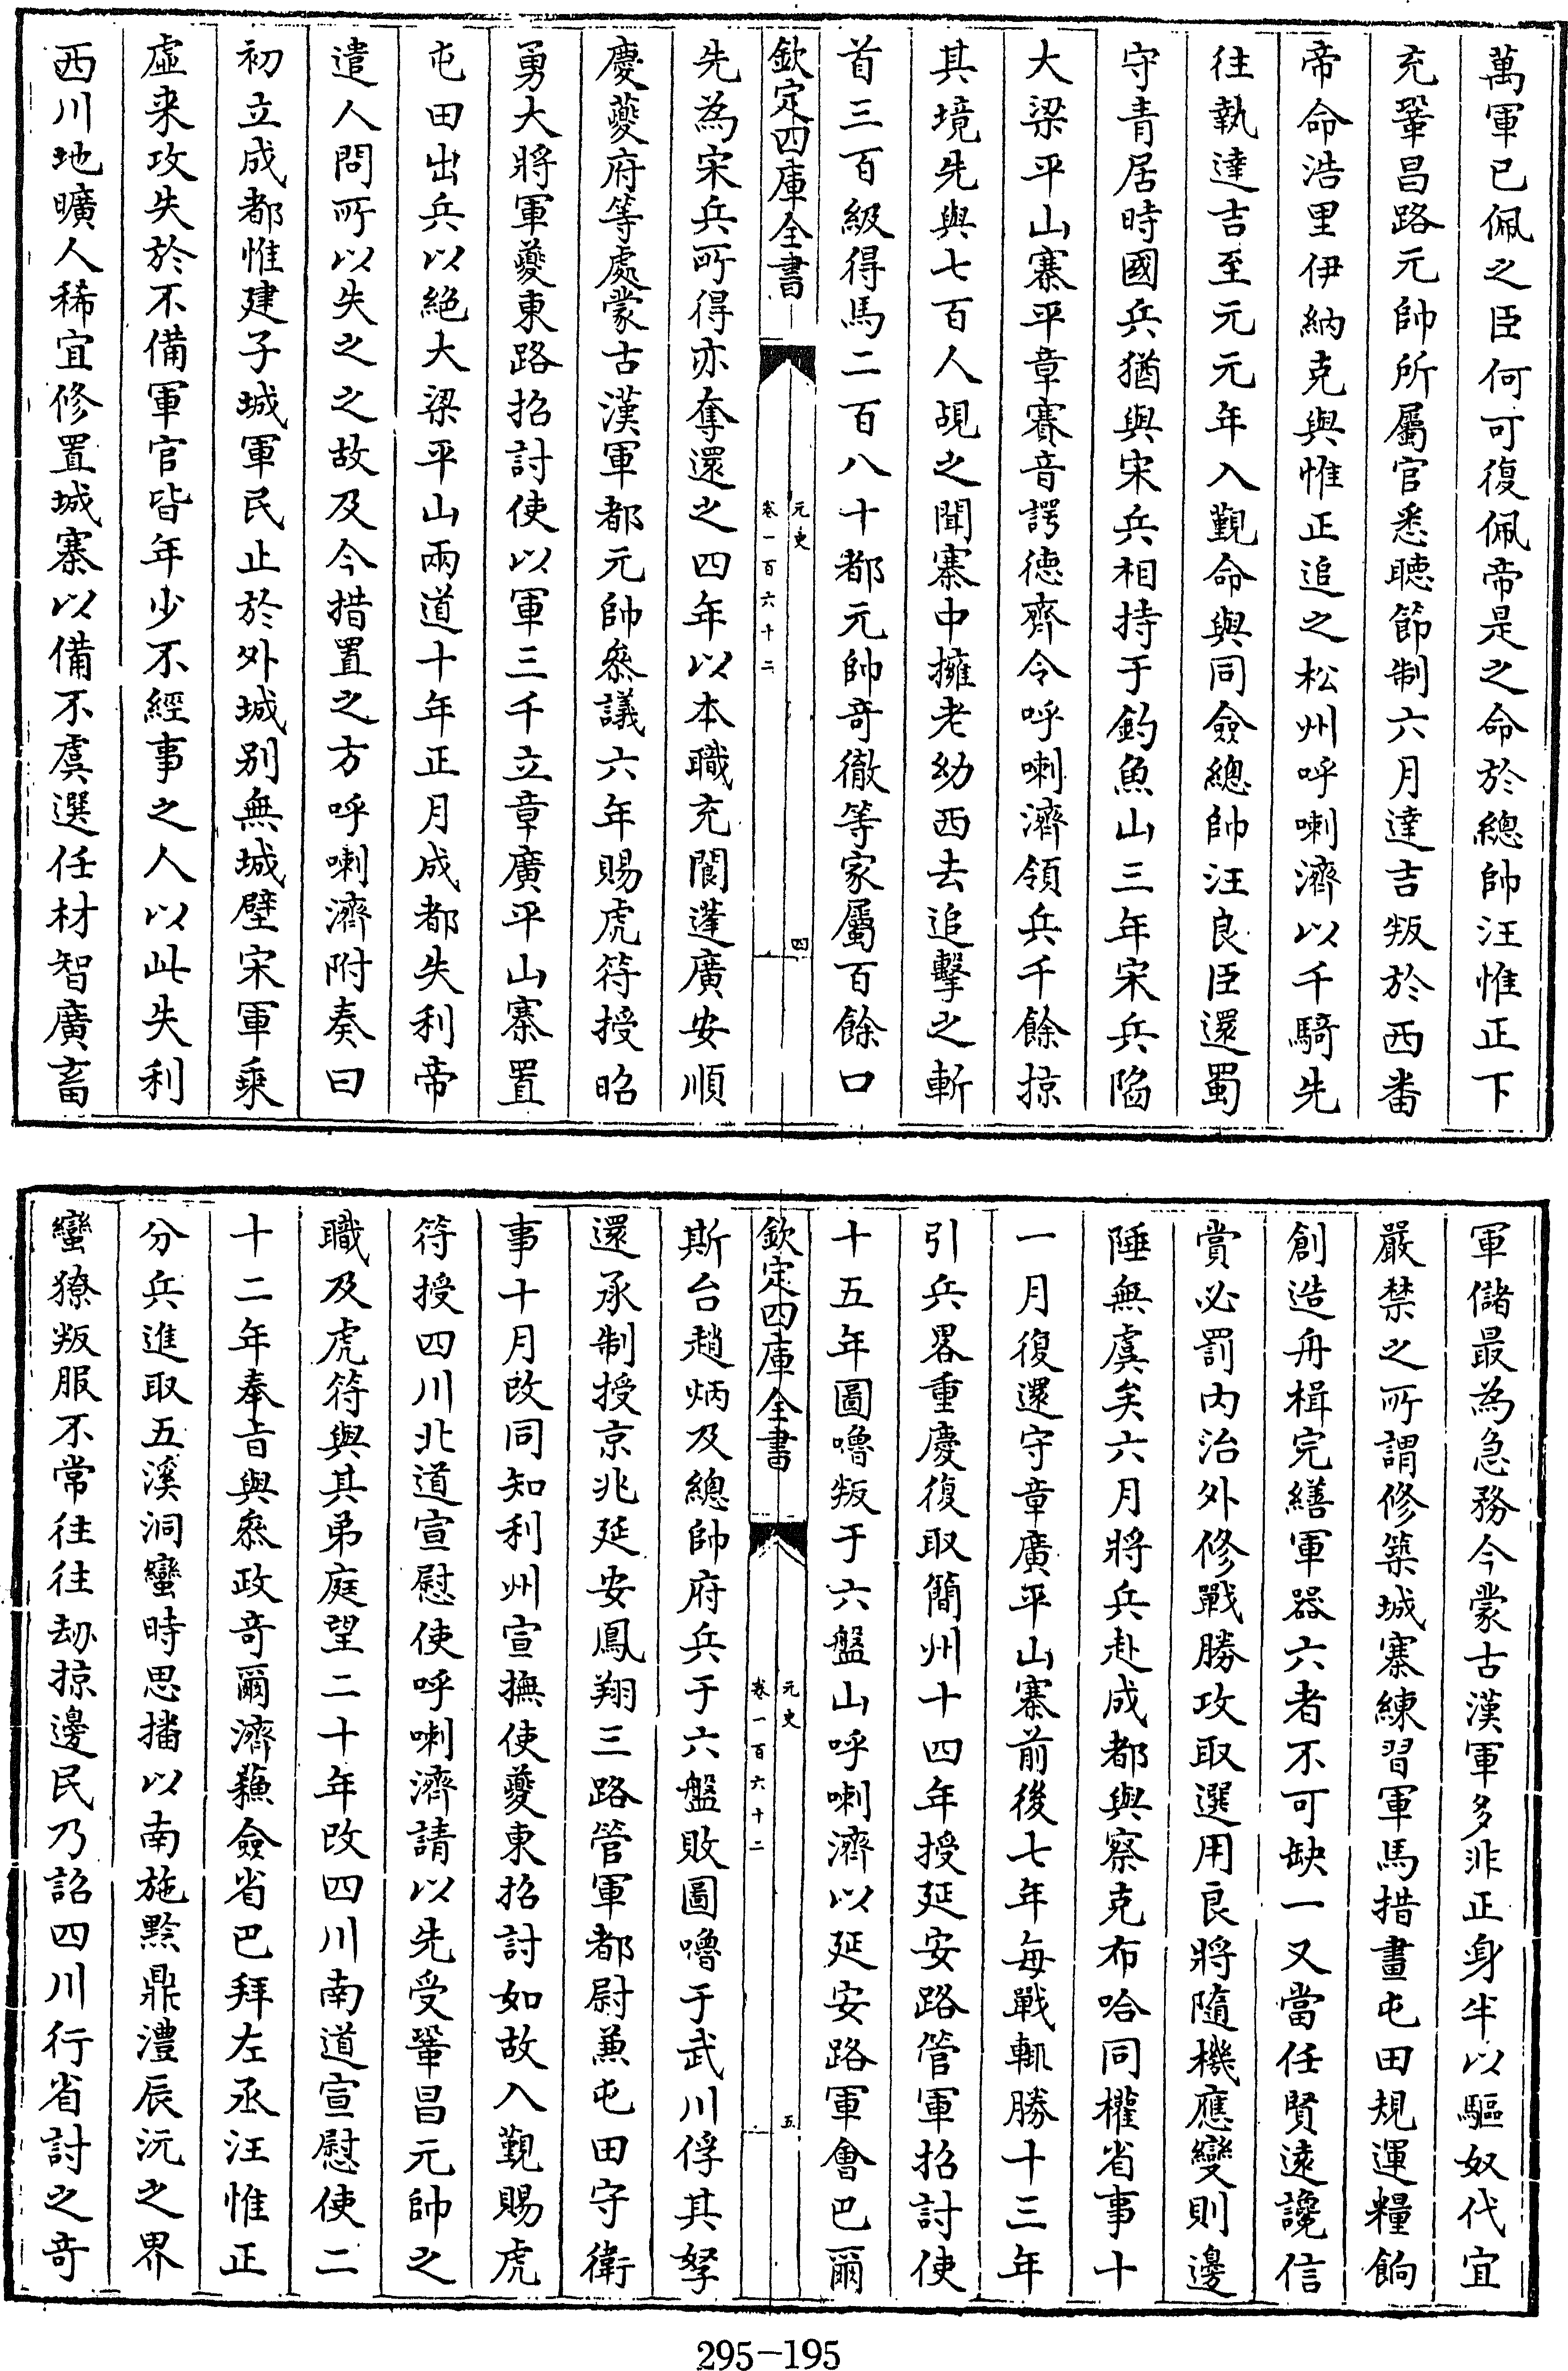 萬軍已佩之臣何可復佩帝是之命於總帥汪惟正下
充鞏昌路元帥所屬官悉聽節制六月達吉叛於西番
帝命浩里伊納克與惟正追之松州呼喇濟以千騎先
往執達吉至元元年入覲命與同僉總帥汪良臣還蜀
守青居時國兵猶與宋兵相持于釣魚山三年宋兵陷
大梁平山寨平章賽音諤德齊令呼喇濟領兵千餘掠
其境先與七百人覘之聞寨中擁老幼西去追擊之斬
首三百級得馬二百八十都元帥竒徹等家屬百餘口
欽定四庫全書
元史
卷一百六十二
四
先為宋兵所得亦奪還之四年以本職充閬蓬廣安順
慶夔府等處蒙古漢軍都元帥叅議六年賜虎符授昭
勇大將軍夔東路招討使以軍三千立章廣平山寨置
屯田出兵以絕大梁平山兩道十年正月成都失利帝
遣人問所以失之之故及今措置之方呼喇濟附奏曰
初立成都惟建子城軍民止於外城别無城壁宋軍乘
虛来攻失於不備軍官皆年少不經事之人以此失利
西川地曠人稀宜修置城寨以備不虞選任材智廣畜
軍儲最為急務今蒙古漢軍多非正身半以驅奴代宜
嚴禁之所謂修築城寨練習軍馬措畫屯田規運糧餉
創造舟楫完繕軍器六者不可缺一又當任賢遠讒信
賞必罰内治外修戰勝攻取選用良將隨機應變則邊
陲無虞矣六月將兵赴成都與察克布哈同權省事十
一月復還守章廣平山寨前後七年每戰輒勝十三年
引兵畧重慶復取簡州十四年授延安路管軍招討使
十五年圖嚕叛于六盤山呼喇濟以延安路軍會巴爾
欽定四庫全書
元史
卷一百六十二
五
斯台趙炳及總帥府兵于六盤敗圖嚕于武川俘其孥
還承制授京兆延安鳳翔三路管軍都尉兼屯田守衛
事十月改同知利州宣撫使夔東招討如故入覲賜虎
符授四川北道宣慰使呼喇濟請以先受鞏昌元帥之
職及虎符與其弟庭望二十年改四川南道宣慰使二
十二年奉㫖與叅政竒爾濟蘓僉省巴拜左丞汪惟正
分兵進取五溪洞蠻時思播以南施黔鼎澧辰沅之界
蠻獠叛服不常往往刼掠邊民乃詔四川行省討之竒
295-195